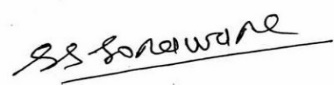 SS Sonawane